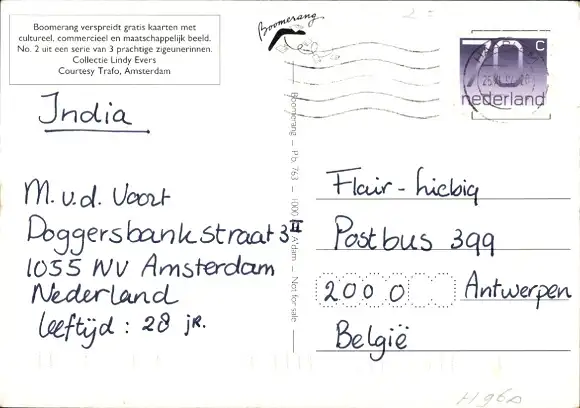 Boomerang verspreidt gratis kaarten met
cultureel, commercieel en maatschappelijk beeld.
No. 2 uit een serie van 3 prachtige zigeunerinnen.
Collectie Lindy Evers
Courtesy Trafo, Amsterdam
Boomerang
70 c
nederland
India
M. v.d. Voort
Doggersbankstraat 3 II
1055 NV Amsterdam
Nederland
leeftijd : 28 jR.
Boomerang – P/b. 763 – 1000 A'dam – Not for sale
Flair - Liebig
Postbus 399
2000 Antwerpen
België
H96a